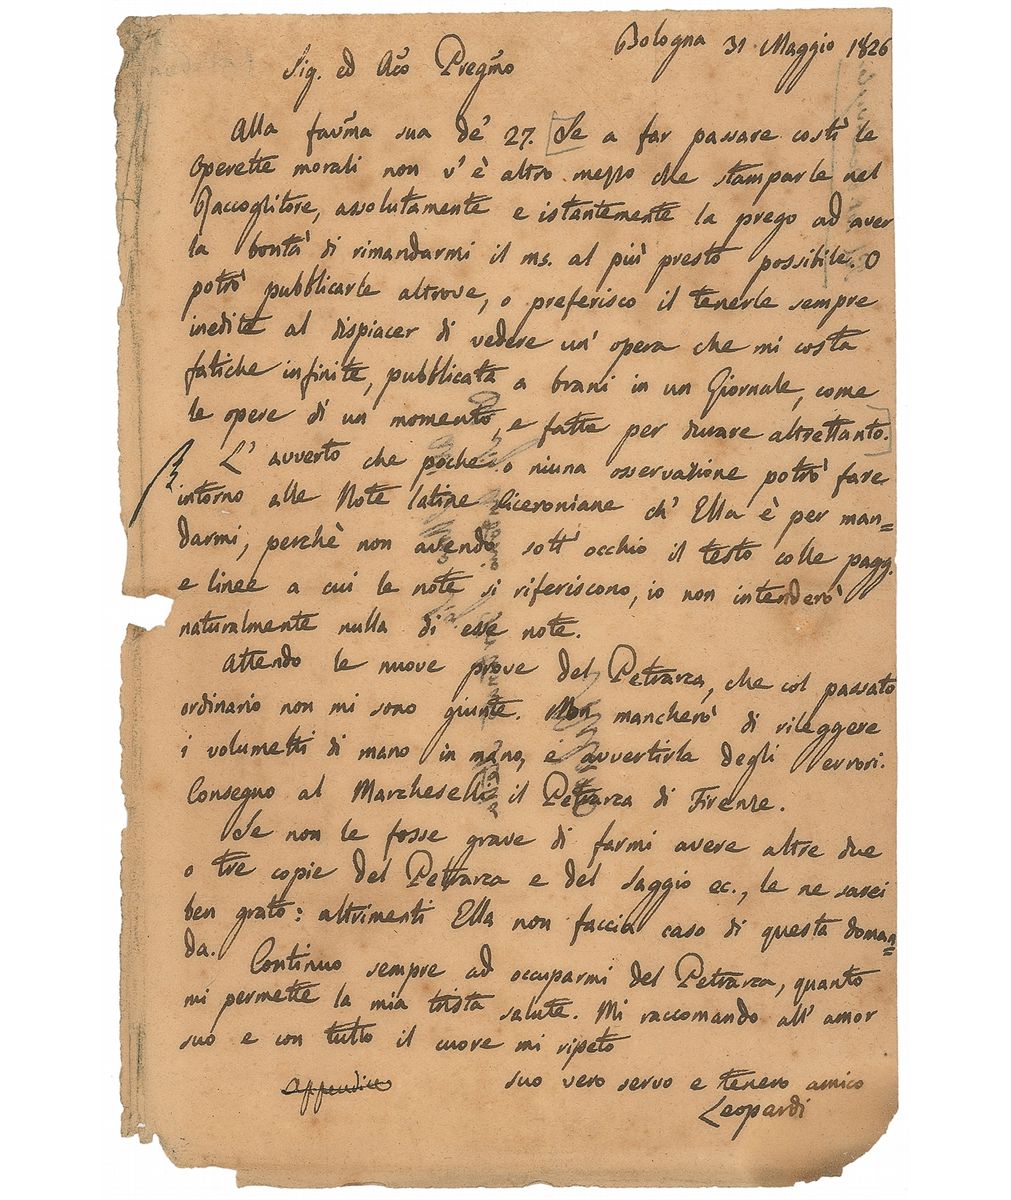 Bologna 31 Maggio 1826
Sig. ed Aco Pregmo
Alla favma sua de' 27. [Se a far passare costì le
Operette morali non v'è altro mezzo che stamparle nel
Raccoglitore, assolutamente e istantemente la prego ad aver
la bontà di rimandarmi il ms. al più presto possibile. O
potrò pubblicarle altrove, o preferisco il tenerle sempre
inedite al dispiacer di vedere un' opera che mi costa
fatiche infinite, pubblicata a brani in un Giornale, come
le opere di un momento, e fatte per durare altrettanto.]
L' avverto che poche o niuna osservazione potrò fare
intorno alle Note latine Ciceroniane ch' Ella è per man=
darmi, perchè non avendo sott' occhio il testo colle pagg.
e linee a cui le note si riferiscono, io non intenderò
naturalmente nulla di esse note.
Attendo le nuove prove del Petrarca, che col passato
ordinario non mi sono giunte. Non mancherò di rileggere
i volumetti di mano in mano, e avvertirla degli errori.
Consegno al Marcheselli il Petrarca di Firenze.
Se non le fosse grave di farmi avere altre due
o tre copie del Petrarca e del Saggio ec., le ne sarei
ben grato: altrimenti Ella non faccia caso di questa doman=
da.
Continuo sempre ad occuparmi del Petrarca, quanto
mi permette la mia trista salute. Mi raccomando all' amor
suo e con tutto il cuore mi ripeto
suo vero servo e tenero amico
Appendice
Leopardi